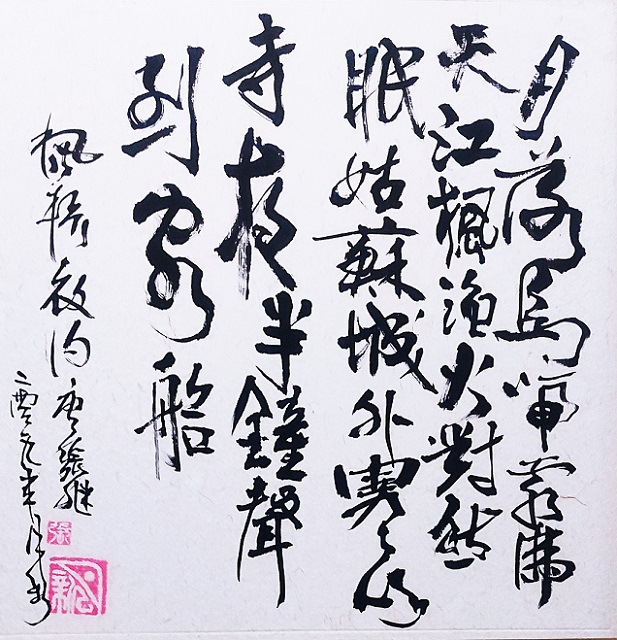 月落烏啼霜滿
天江楓漁火對愁
眠姑蘇城外寒山
寺夜半鐘聲
到客船
楓橋夜泊 唐張継
二零年月
張